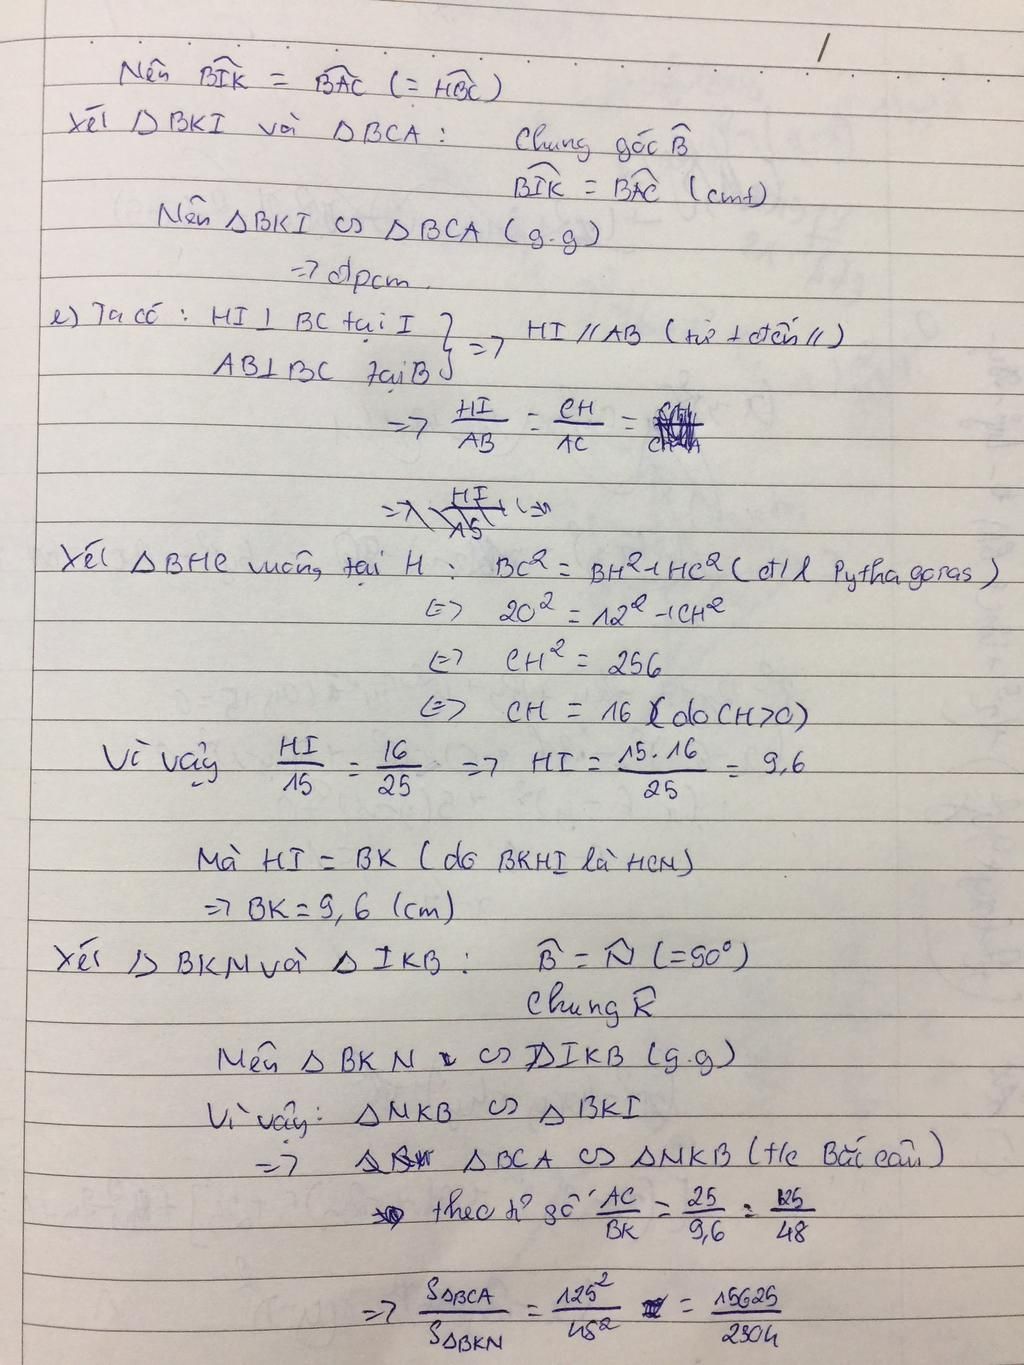 Nên BÎK = BÂC (= HB̂C)
Xét Δ BKI và Δ BCA : Chung góc B̂
BÎK = BÂC (cmt)
Nên Δ BKI ∽ Δ BCA (g.g)
=> đpcm.
e) Ta có : HI ⊥ BC tại I } => HI // AB (từ ⊥ đến //)
AB ⊥ BC tại B
=> HI/AB = CH/AC =
=> HI/15
Xét Δ BHC vuông tại H : BC² = BH² + HC² (đ/l Pythagoras)
<=> 20² = 12² + CH²
<=> CH² = 256
<=> CH = 16 (do CH>0)
Vì vậy HI/15 = 16/25 => HI = 15.16/25 = 9,6
Mà HI = BK (do BKHI là HCN)
=> BK = 9,6 (cm)
Xét Δ BKN và Δ IKB : B̂ = N̂ (=90°)
Chung K̂
Nên Δ BKN ∽ Δ IKB (g.g)
Vì vậy : Δ NKB ∽ Δ BKI
=> Δ BCA ∽ Δ NKB (t/c Bắc cầu)
theo tỉ số AC/BK = 25/9,6 = 125/48
=> SΔBCA/SΔBKN = 125²/48² = 15625/2304